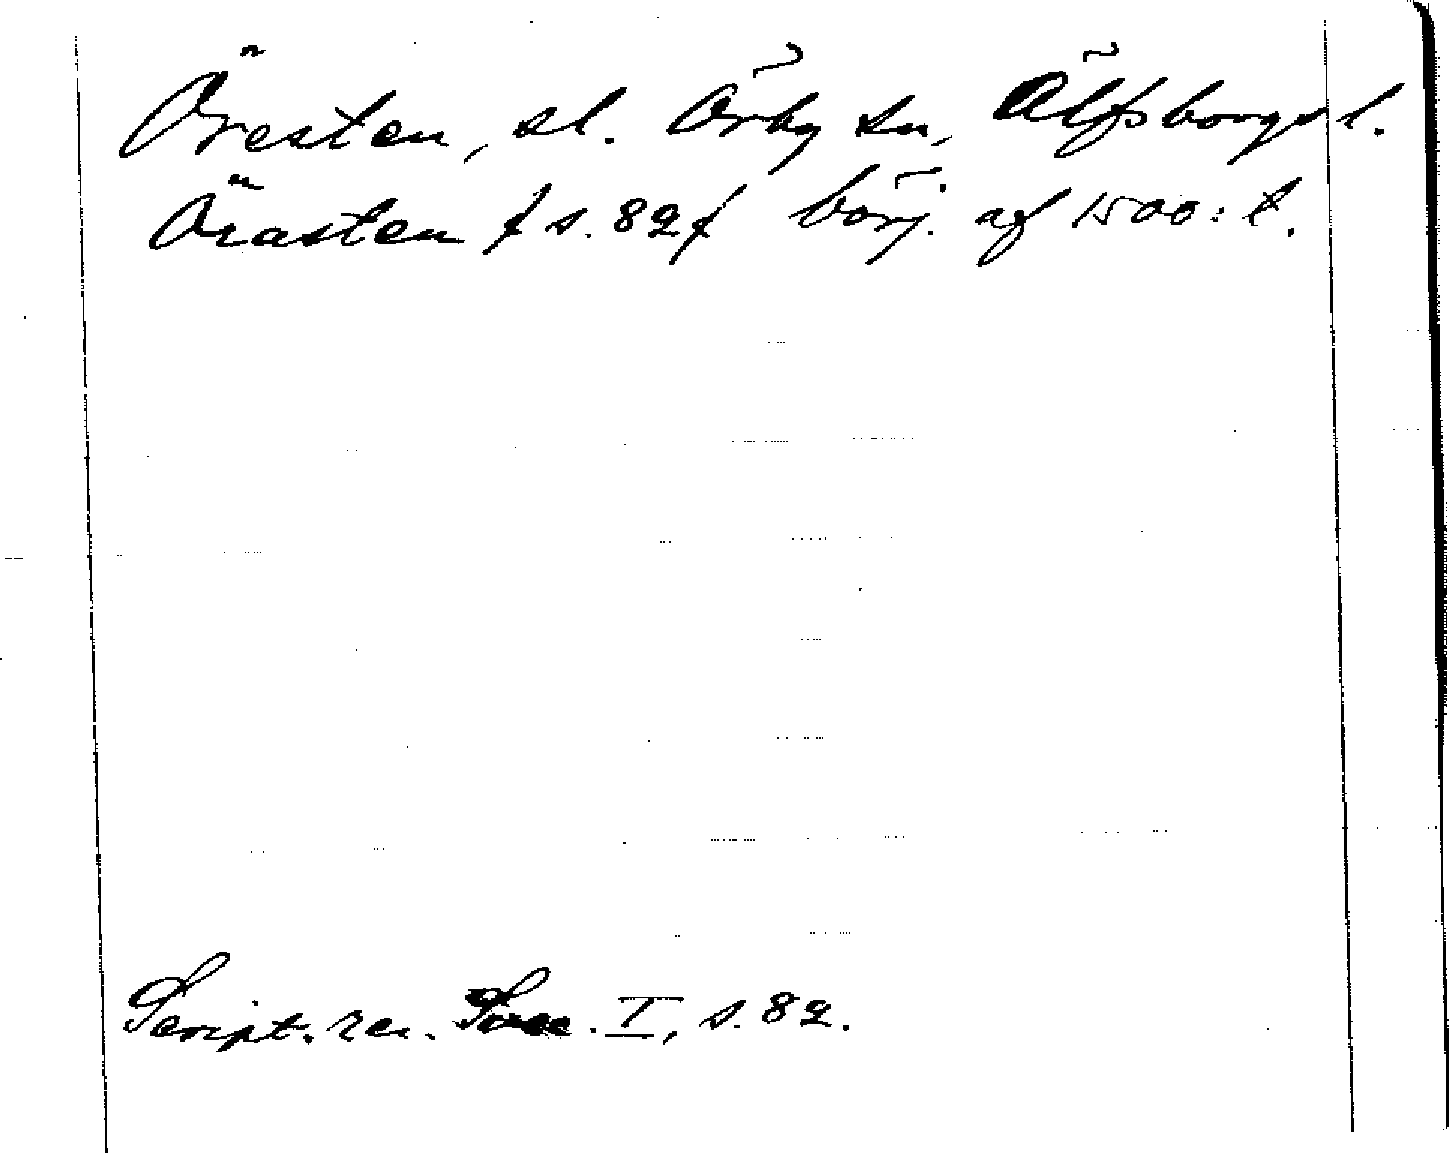 Öresten, sl. Örby sn, Älfsborgs l.
Örasten /s. 82/ börj. af 1500: t.
Script. rer. Suec. I, s. 82.